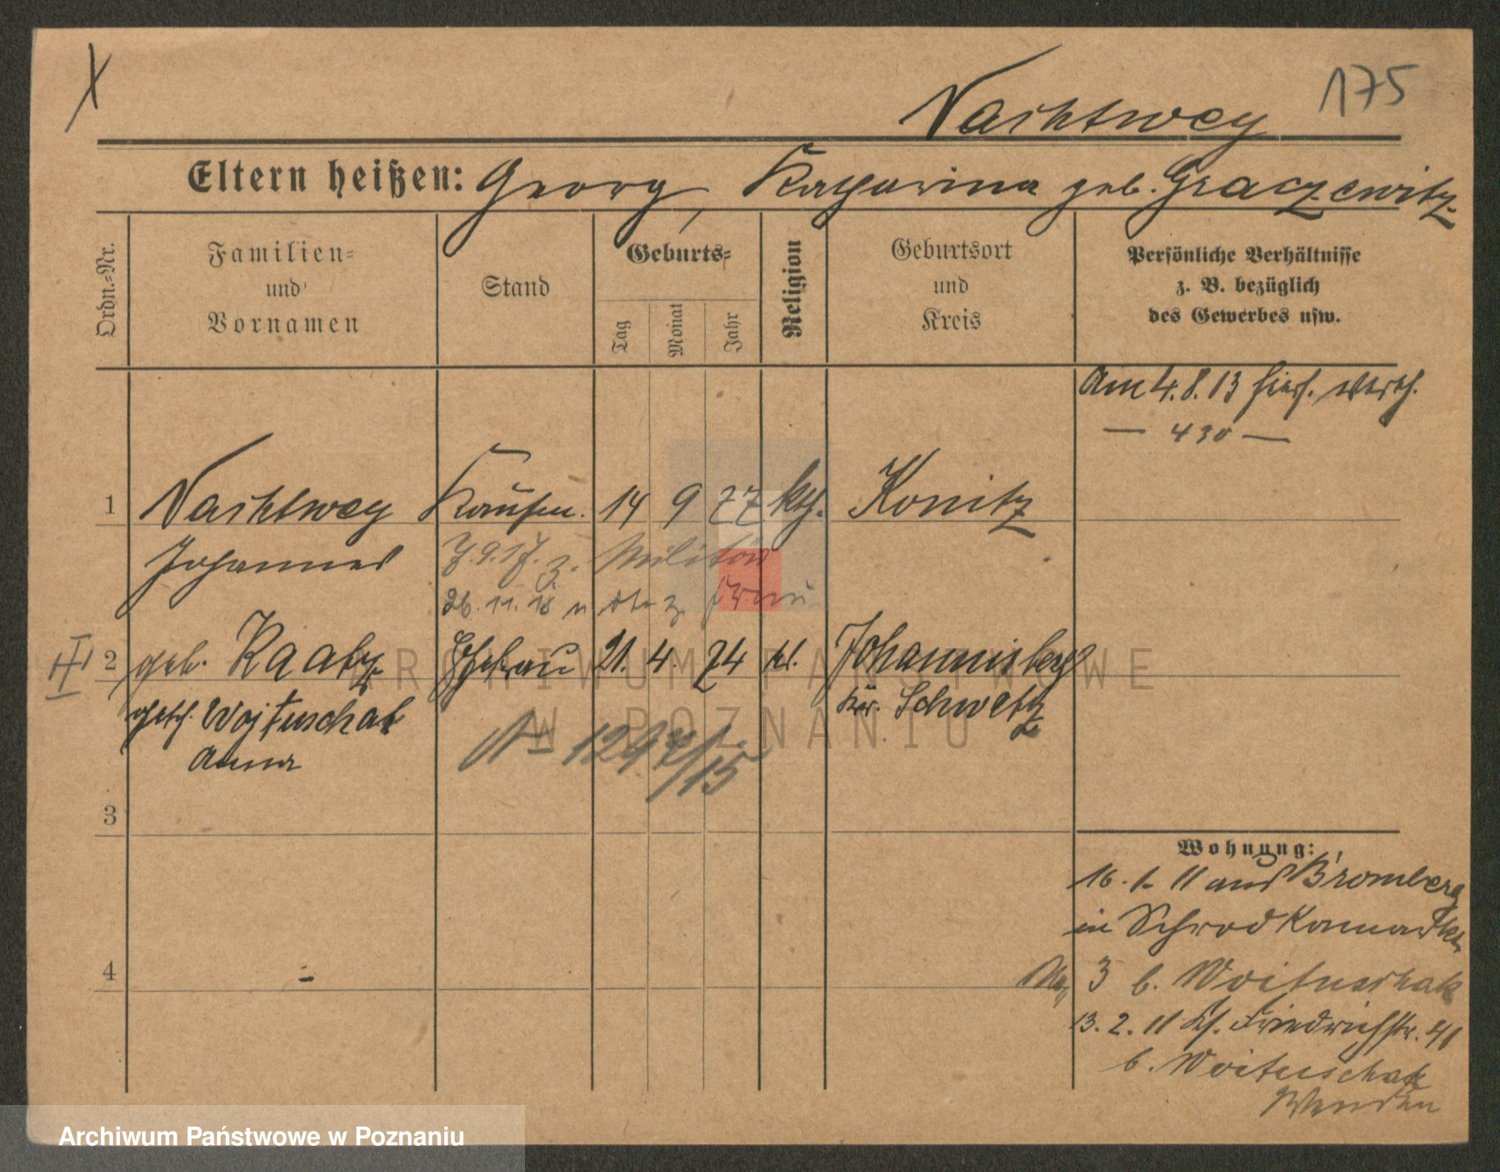 175
Nachtwey
Eltern heißen: Georg, Katharina geb. Graczewitz
Ordn.-Nr.
Familien- und Vornamen
Stand
Geburts-
Tag
Monat
Jahr
Religion
Geburtsort und Kreis
Persönliche Verhältnisse
z. B. bezüglich
des Gewerbes usw.
Am 4.8.13
— 430 —
1 Nachtwey Kaufm. 14 9 77 kth. Konitz
Johannes 7.9.17. z. Militär
26.11.18 z. Frau
II 2 geb. Raatz Ehefrau 21. 4. 74 kt. Johannisberg
gesch. Wojtuschak Kr. Schwetz
Anna
A 1297/15
3
Wohnung:
16. 1. 11 aus Bromberg
in Schrod
4
3 b. Woituschak
13. 2. 11 Friedrichstr. 41
b. Woituschak
Wenden
ARCHIWUM PAŃSTWOWE
W POZNANIU
Archiwum Państwowe w Poznaniu